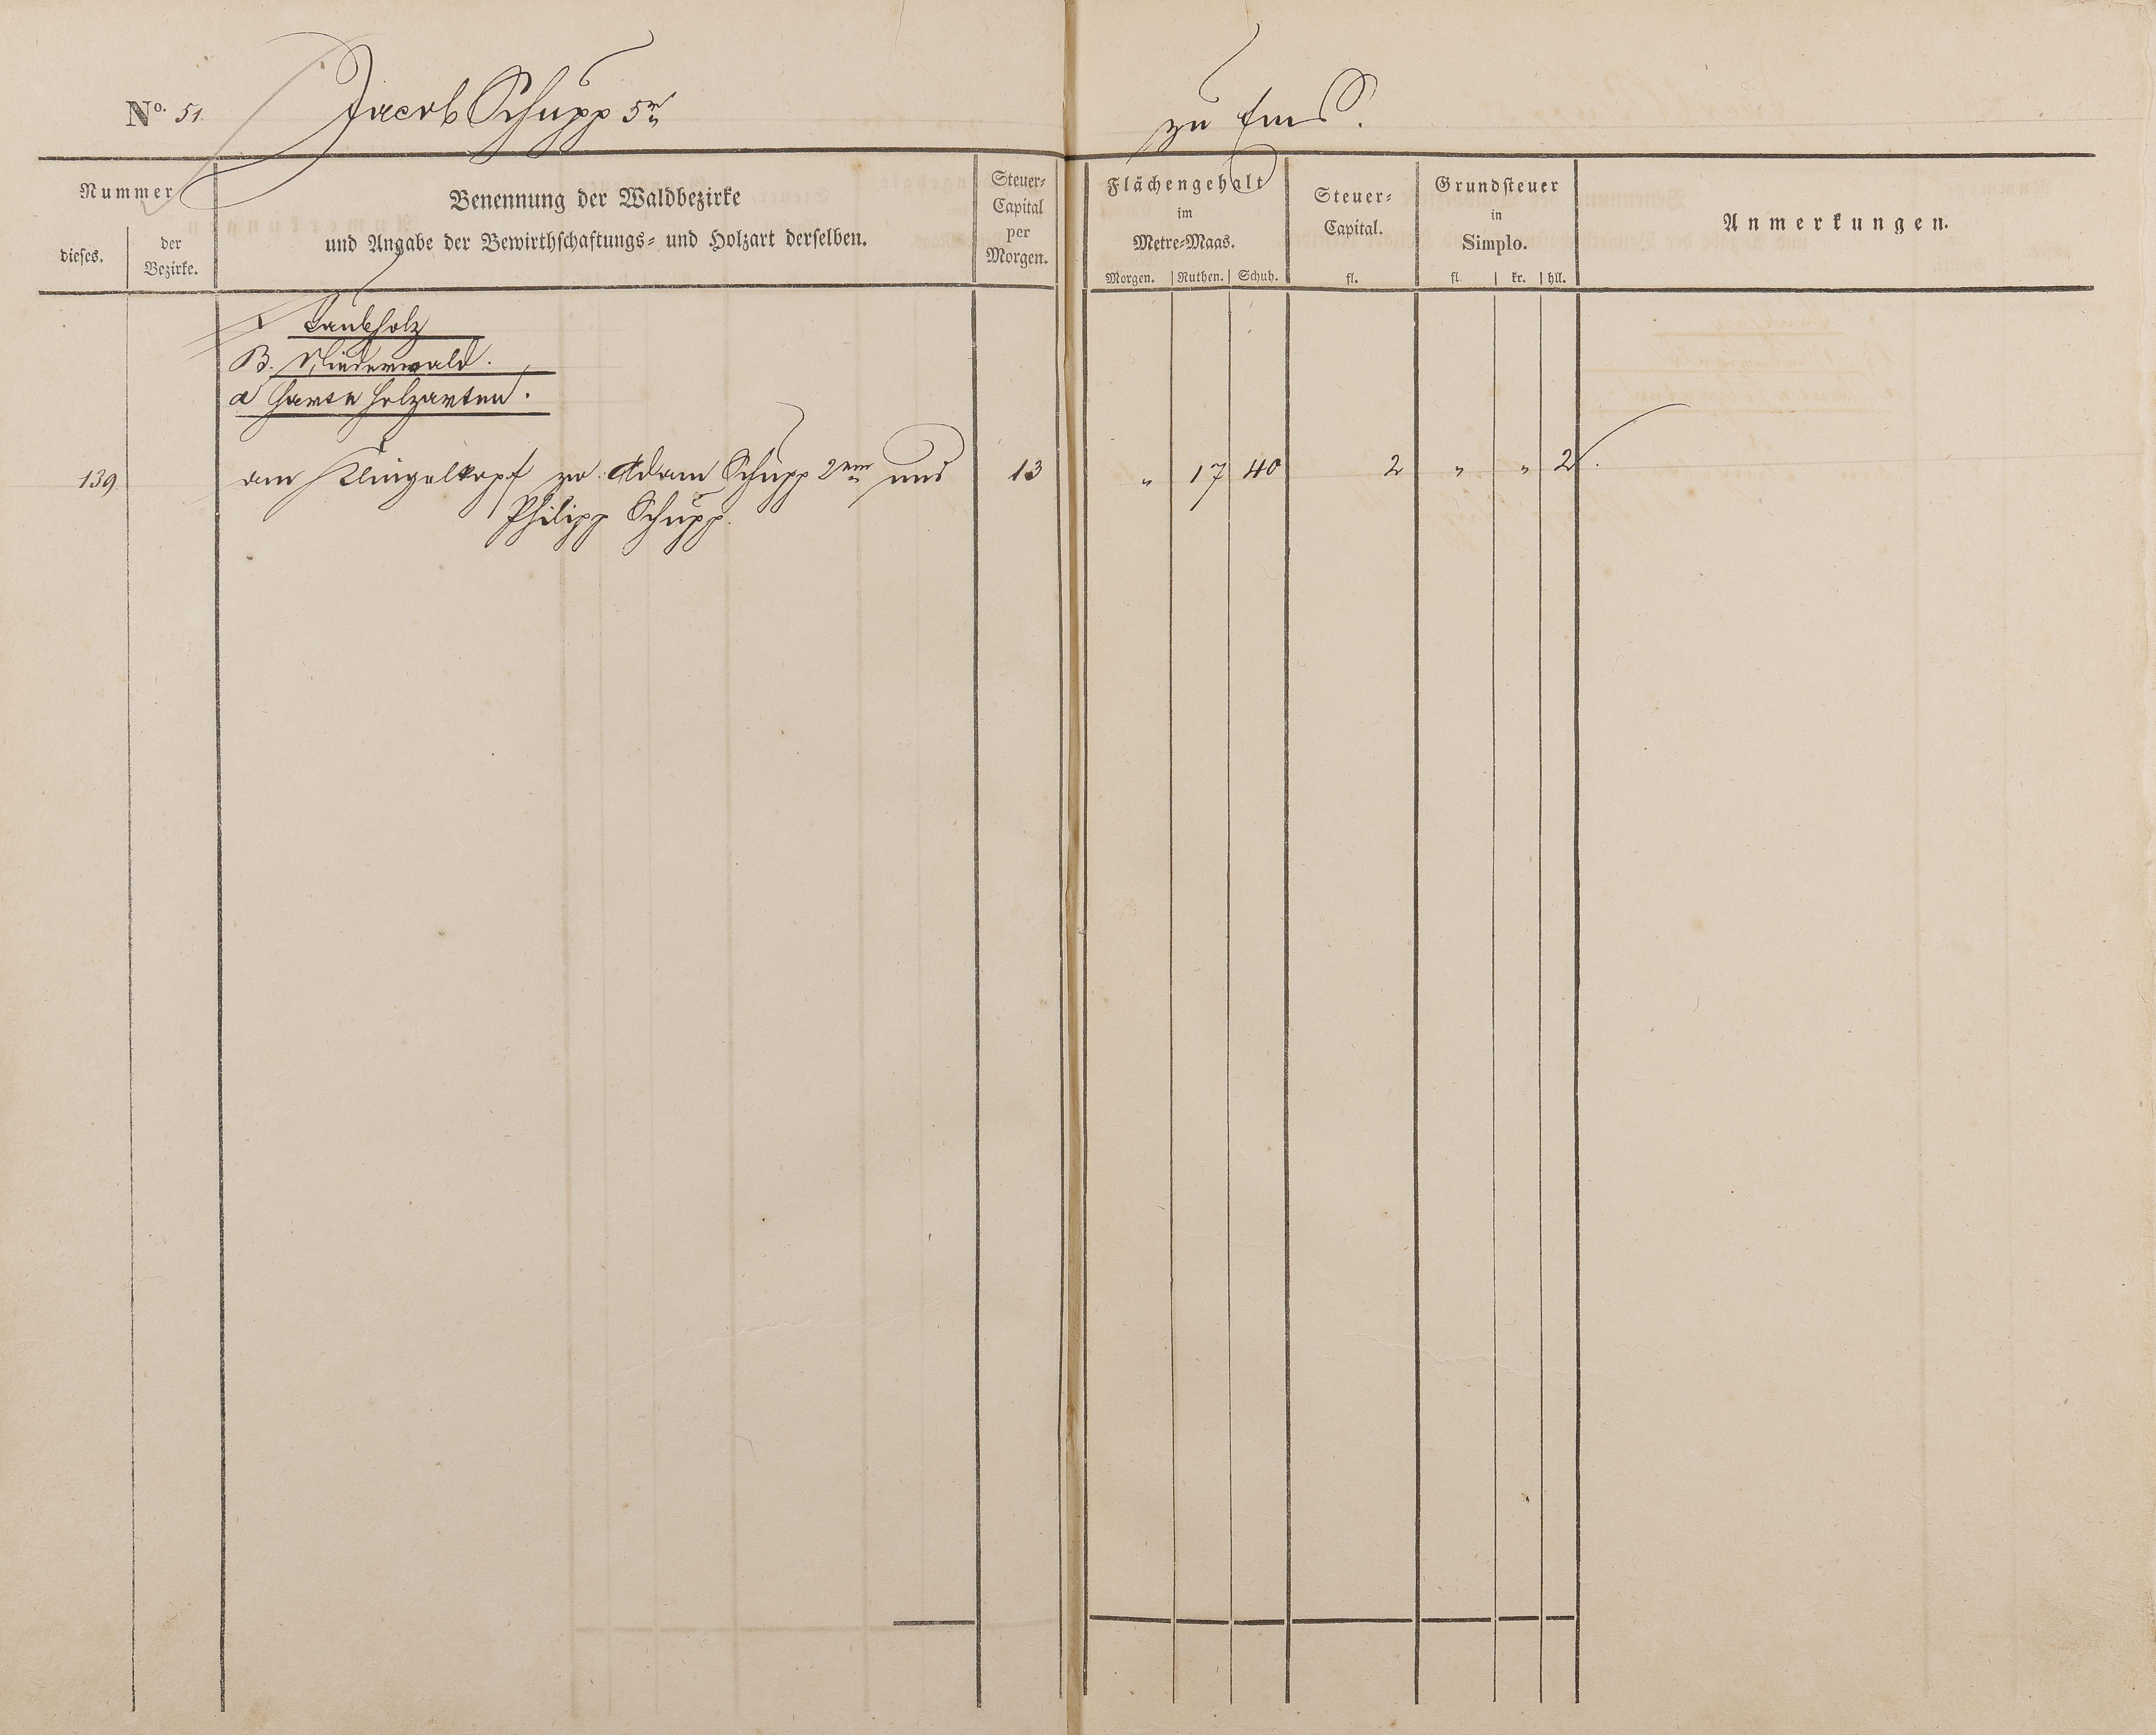 No. 51 Jacob Schupp 5r zu Ems.
Nummer
dieses.
der
Bezirke.
Benennung der Waldbezirke
und Angabe der Bewirthschaftungs- und Holzart derselben.
Steuer-
Capital
per
Morgen.
Flächengehalt
im
Metre-Maas.
Morgen. Ruthen. Schuh.
Steuer-
Capital.
fl.
Grundsteuer
in
Simplo.
fl. kr. hll.
Anmerkungen.
Laubholz
B. Niederwald.
a harte Holzarten.
139. am Klingelkopf zw. Adam Schupp 2ten und 13 " 17 40 2 " " 2.
Philipp Schupp.